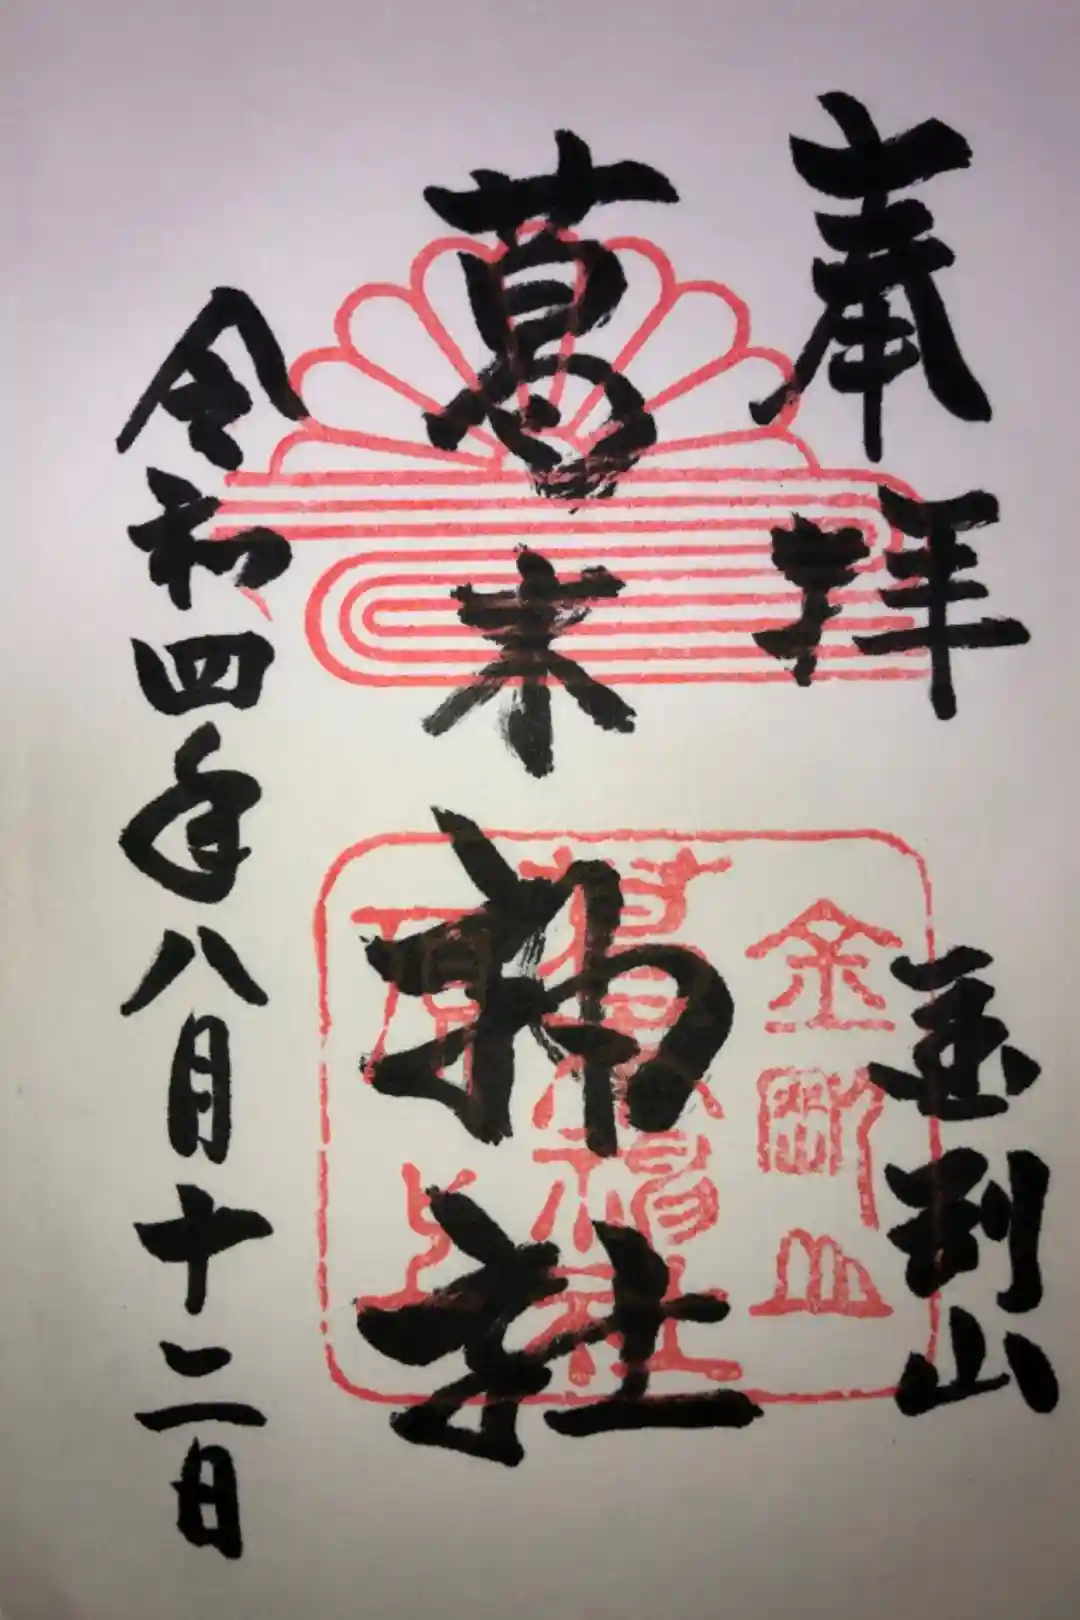 奉拝
金剛山
葛木神社
令和四年八月十二日
金剛山
葛木神社
頂上